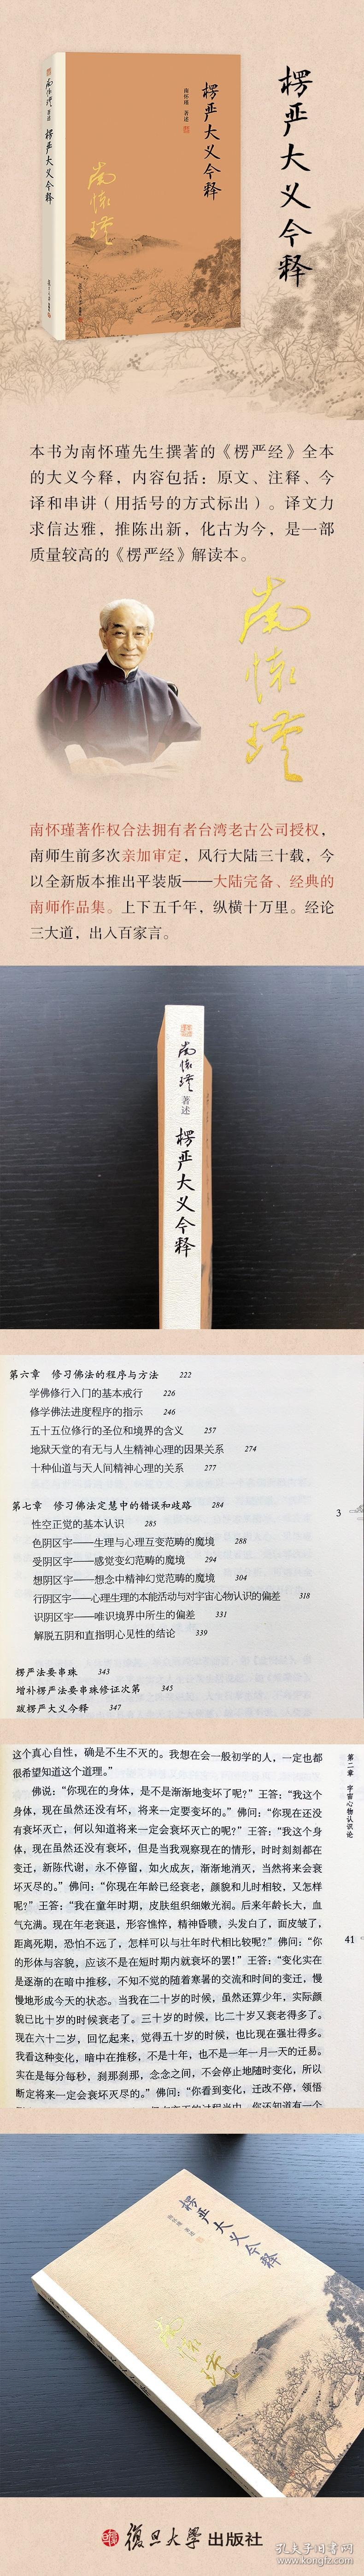 南怀瑾 著述
楞严大义今释
南怀瑾
南怀瑾 著述
楞严大义今释
楞严大义今释
本书为南怀瑾先生撰著的《楞严经》全本
的大义今释，内容包括：原文、注释、今
译和串讲（用括号的方式标出）。译文力
求信达雅，推陈出新，化古为今，是一部
质量较高的《楞严经》解读本。
南怀瑾
南怀瑾著作权合法拥有者台湾老古公司授权，
南师生前多次亲加审定，风行大陆三十载，今
以全新版本推出平装版——大陆完备、经典的
南师作品集。上下五千年，纵横十万里。经论
三大道，出入百家言。
南怀瑾 著述
楞严大义今释
第六章 修习佛法的程序与方法 222
学佛修行入门的基本戒行 226
修学佛法进度程序的指示 246
五十五位修行的圣位和境界的含义 257
地狱天堂的有无与人生精神心理的因果关系 274
十种仙道与天人间精神心理的关系 277
第七章 修习佛法定慧中的错误和歧路 284
性空正觉的基本认识 285
色阴区宇——生理与心理互变范畴的魔境 288
受阴区宇——感觉变幻范畴的魔境 294
想阴区宇——想念中精神幻觉范畴的魔境 304
行阴区宇——心理生理的本能活动与对宇宙心物认识的偏差 318
识阴区宇——唯识境界中所生的偏差 331
解脱五阴和直指明心见性的结论 339
楞严法要串珠 343
增补楞严法要串珠修证次第 345
跋楞严大义今释 347
3
这个真心自性，确是不生不灭的。我想在会一般初学的人，一定也都
很希望知道这个道理。”
佛说：“你现在的身体，是不是渐渐地变坏了呢？”王答：“我这个
身体，现在虽然还没有坏，将来一定要变坏的。”佛问：“你现在还没
有衰坏灭亡，何以知道将来一定会衰坏灭亡的呢？”王答：“我这个身
体，现在虽然没有衰坏，但是当我观察现在的情形，时时刻刻都在
变迁，新陈代谢，永不停留，如火成灰，渐渐地消灭，当然将来会衰
坏灭尽的。”佛问：“你现在年龄已经衰老，颜貌和儿时相较，又怎样
呢？”王答：“我在童年时期，皮肤组织细嫩光润。后来年龄长大，血
气充满。现在年老衰退，形容憔悴，精神昏聩，头发白了，面皮皱了，
距离死期，恐怕不远了，怎样可以与壮年时代相比较呢？”佛问：“你
的形体与容貌，应该不是在短时期内就衰坏的罢！”王答：“变化实在
是逐渐的在暗中推移，不知不觉的随着寒暑的交流和时间的变迁，慢
慢地形成今天的状态。当我在二十岁的时候，虽然还算少年，实际颜
貌已比十岁的时候衰老了。三十岁的时候，比二十岁又衰老得多了。
现在六十二岁，回忆起来，觉得五十岁的时候，也比现在强壮得多。
我看这种变化，暗中在推移，不是十年，也不是一年一月一天的迁易。
实在是每分每秒，刹那刹那，念念之间，不会停止地随时变化，所以
断定将来一定会衰坏灭尽的。”佛问：“你看到变化，迁改不停，领悟
第二章 宇宙心物认识论
41
楞严大义今释
南怀瑾 著述
南怀瑾
复旦大学出版社
孔夫子旧书网
www.kongfz.com